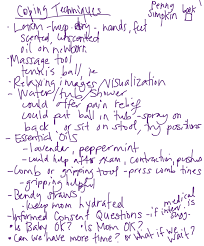 Coping Techniques
Penny Simpkin book!
- Lotion - hands, feet
scented, unscented
oil on newborn
- Massage tool
tennis ball, ie
- Relaxing images/visualization
- Water/tub/shower
could offer pain relief
could put ball in tub - spray on
back or sit on stool, try positions
- Essential oils
- lavender, peppermint
- could help after exam, contraction, pushing
- Comb or gripping tool - press comb tines
- gripping helpful
- Bendy straws
- keep mom hydrated
- Informed Consent Questions - if medical interv. is sugg.
• Is Baby OK? • Is Mom OK?
• Can we have more time? or What if we wait?